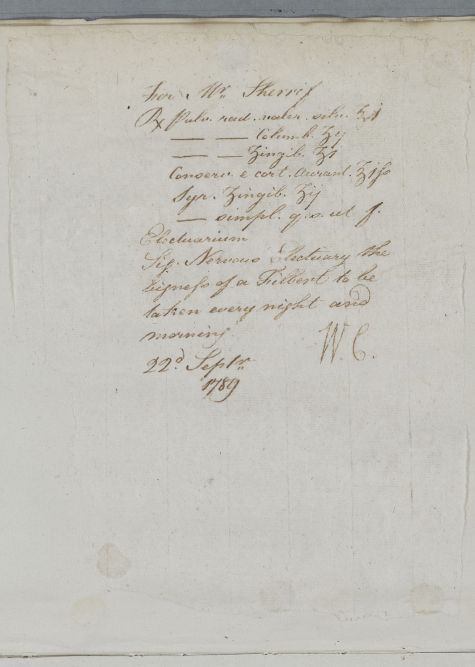 For Mr. Sherrif
℞ Pulv. rad. valer. silv. ℥j
— — Columb. ʒij
— — Zingib. ʒj
Conserv. e cort. Aurant. ℥jſs
Syr. Zingib. ℥ij
— simpl. q.s. ut f.
Electuarium
Sig. Nervous Electuary the
bigneſs of a Filbert to be
taken every night and
morning
W. C.
22d. Septr.
1789